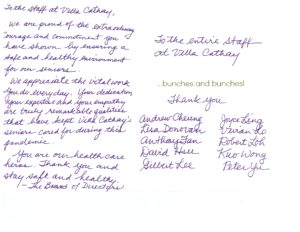 To the staff at Villa Cathay,
we are proud of the extraordinary
courage and commitment you
have shown by ensuring a
safe and healthy environment
for our seniors.
We appreciate the vital work
you do everyday. Your dedication,
your expertise and your empathy
are truly remarkable qualities
that have kept Villa Cathay's
seniors cared for during this
pandemic.
You are our health care
heros. Thank you and
stay safe and healthy.
- The Board of Directors
To the entire staff
at Villa Cathay
...bunches and bunches!
Thank you
Andrew Cheung
Lisa Donovan
Anthony Fan
David Hsu
Gilbert Lee
Joyce Leng
Vivian Lo
Robert Loh
Kuo Wong
Peter Yu